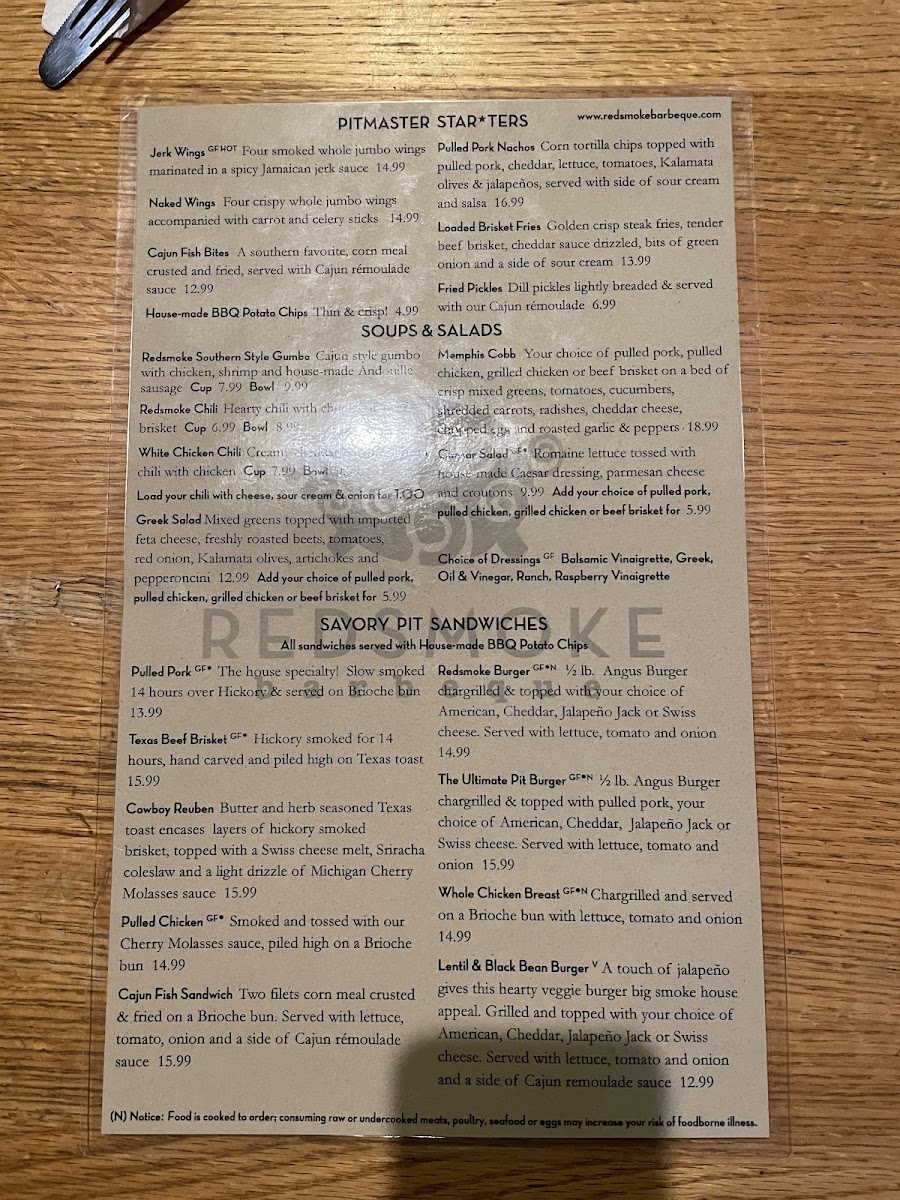 PITMASTER STAR*TERS
www.redsmokebarbeque.com
Jerk Wings GF HOT Four smoked whole jumbo wings
marinated in a spicy Jamaican jerk sauce 14.99
Naked Wings Four crispy whole jumbo wings
accompanied with carrot and celery sticks 14.99
Cajun Fish Bites A southern favorite, corn meal
crusted and fried, served with Cajun rémoulade
sauce 12.99
House-made BBQ Potato Chips Thin & crisp! 4.99
Pulled Pork Nachos Corn tortilla chips topped with
pulled pork, cheddar, lettuce, tomatoes, Kalamata
olives & jalapeños, served with side of sour cream
and salsa 16.99
Loaded Brisket Fries Golden crisp steak fries, tender
beef brisket, cheddar sauce drizzled, bits of green
onion and a side of sour cream 13.99
Fried Pickles Dill pickles lightly breaded & served
with our Cajun rémoulade 6.99
SOUPS & SALADS
Redsmoke Southern Style Gumbo Cajun style gumbo
with chicken, shrimp and house-made Andouille
sausage Cup 7.99 Bowl 9.99
Redsmoke Chili Hearty chili with
brisket Cup 6.99 Bowl 8.99
White Chicken Chili
chili with chicken Cup 7.99 Bowl
Load your chili with cheese, sour cream & onion for 1.00
Greek Salad Mixed greens topped with imported
feta cheese, freshly roasted beets, tomatoes,
red onion, Kalamata olives, artichokes and
pepperoncini 12.99 Add your choice of pulled pork,
pulled chicken, grilled chicken or beef brisket for 5.99
Memphis Cobb Your choice of pulled pork, pulled
chicken, grilled chicken or beef brisket on a bed of
crisp mixed greens, tomatoes, cucumbers,
shredded carrots, radishes, cheddar cheese,
chopped egg and roasted garlic & peppers 18.99
Caesar Salad GF* Romaine lettuce tossed with
house-made Caesar dressing, parmesan cheese
and croutons 9.99 Add your choice of pulled pork,
pulled chicken, grilled chicken or beef brisket for 5.99
Choice of Dressings GF Balsamic Vinaigrette, Greek,
Oil & Vinegar, Ranch, Raspberry Vinaigrette
REDSMOKE
barbeque
SAVORY PIT SANDWICHES
All sandwiches served with House-made BBQ Potato Chips
Pulled Pork GF* The house specialty! Slow smoked
14 hours over Hickory & served on Brioche bun
13.99
Texas Beef Brisket GF* Hickory smoked for 14
hours, hand carved and piled high on Texas toast
15.99
Cowboy Reuben Butter and herb seasoned Texas
toast encases layers of hickory smoked
brisket, topped with a Swiss cheese melt, Sriracha
coleslaw and a light drizzle of Michigan Cherry
Molasses sauce 15.99
Pulled Chicken GF* Smoked and tossed with our
Cherry Molasses sauce, piled high on a Brioche
bun 14.99
Cajun Fish Sandwich Two filets corn meal crusted
& fried on a Brioche bun. Served with lettuce,
tomato, onion and a side of Cajun rémoulade
sauce 15.99
Redsmoke Burger GF*N ½ lb. Angus Burger
chargrilled & topped with your choice of
American, Cheddar, Jalapeño Jack or Swiss
cheese. Served with lettuce, tomato and onion
14.99
The Ultimate Pit Burger GF*N ½ lb. Angus Burger
chargrilled & topped with pulled pork, your
choice of American, Cheddar, Jalapeño Jack or
Swiss cheese. Served with lettuce, tomato and
onion 15.99
Whole Chicken Breast GF*N Chargrilled and served
on a Brioche bun with lettuce, tomato and onion
14.99
Lentil & Black Bean Burger V A touch of jalapeño
gives this hearty veggie burger big smoke house
appeal. Grilled and topped with your choice of
American, Cheddar, Jalapeño Jack or Swiss
cheese. Served with lettuce, tomato and onion
and a side of Cajun remoulade sauce 12.99
(N) Notice: Food is cooked to order; consuming raw or undercooked meats, poultry, seafood or eggs may increase your risk of foodborne illness.